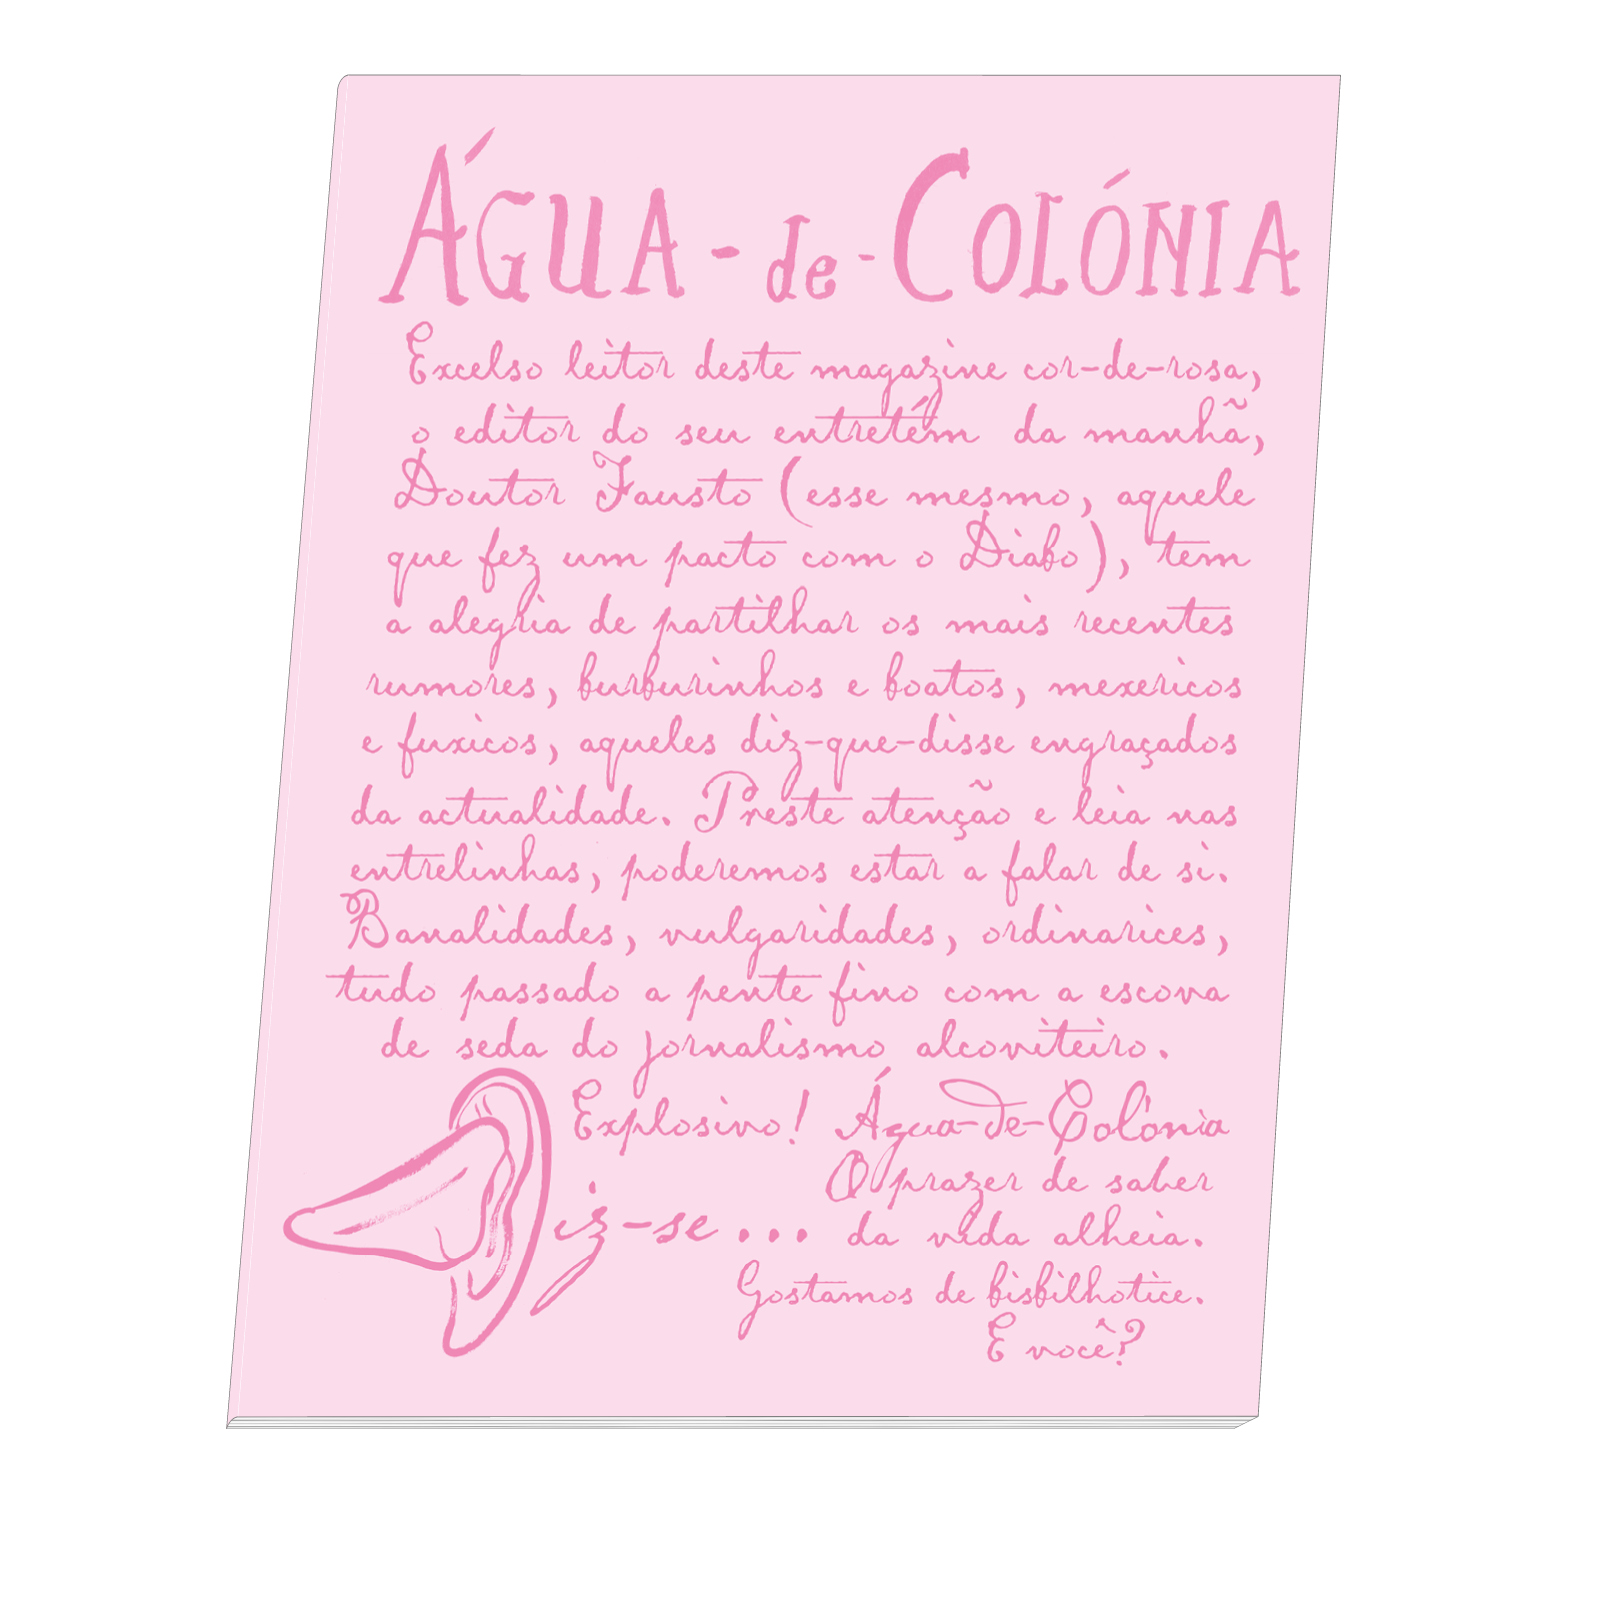 ÁGUA-de-COLÓNIA
Excelso leitor deste magazine cor-de-rosa,
o editor do seu entretém da manhã,
Doutor Fausto (esse mesmo, aquele
que fez um pacto com o Diabo), tem
a alegria de partilhar os mais recentes
rumores, burburinhos e boatos, mexericos
e fuxicos, aqueles diz-que-disse engraçados
da actualidade. Preste atenção e leia nas
entrelinhas, poderemos estar a falar de si.
Banalidades, vulgaridades, ordinarices,
tudo passado a pente fino com a escova
de seda do jornalismo alcoviteiro.
Explosivo! Água-de-Colónia
O prazer de saber
Diz-se... da vida alheia.
Gostamos de bisbilhotice.
E você?